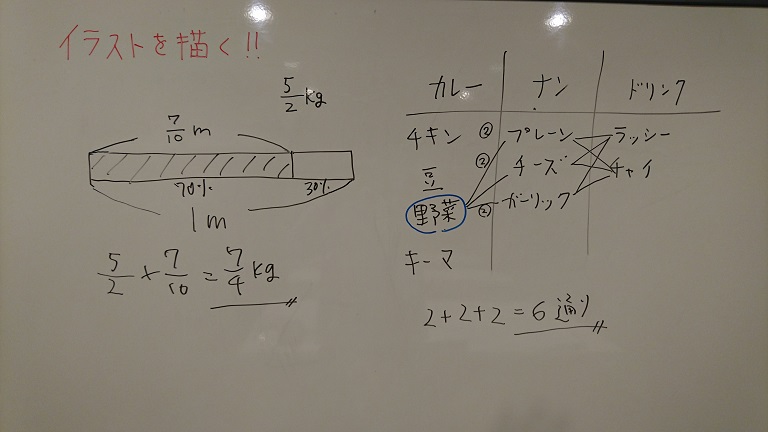 イラストを描く!!
5/2 kg
7/10 m
70% 30%
1m
5/2 × 7/10 = 7/4 kg
カレー ナン ドリンク
チキン ② プレーン ラッシー
豆 ② チーズ チャイ
野菜 ② ガーリック
キーマ
2+2+2=6通り